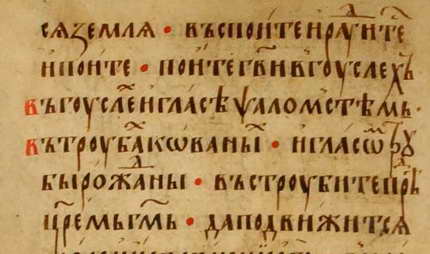 сѧ землѧ • въспоите и раⷣуитеⷭ҇
и поите • поите гв҃и в гоуслехъ
въ гоуслеⷯ и гласѣ ѱаломьстѣмь •
въ троубаⷯ кѡваныⷯ • и гласѡⷨ трꙋ
бы рожаⷩ҇ны • въстроубите прⷣѣ
цр҃емь гм҃ь • да подвижитсѧ